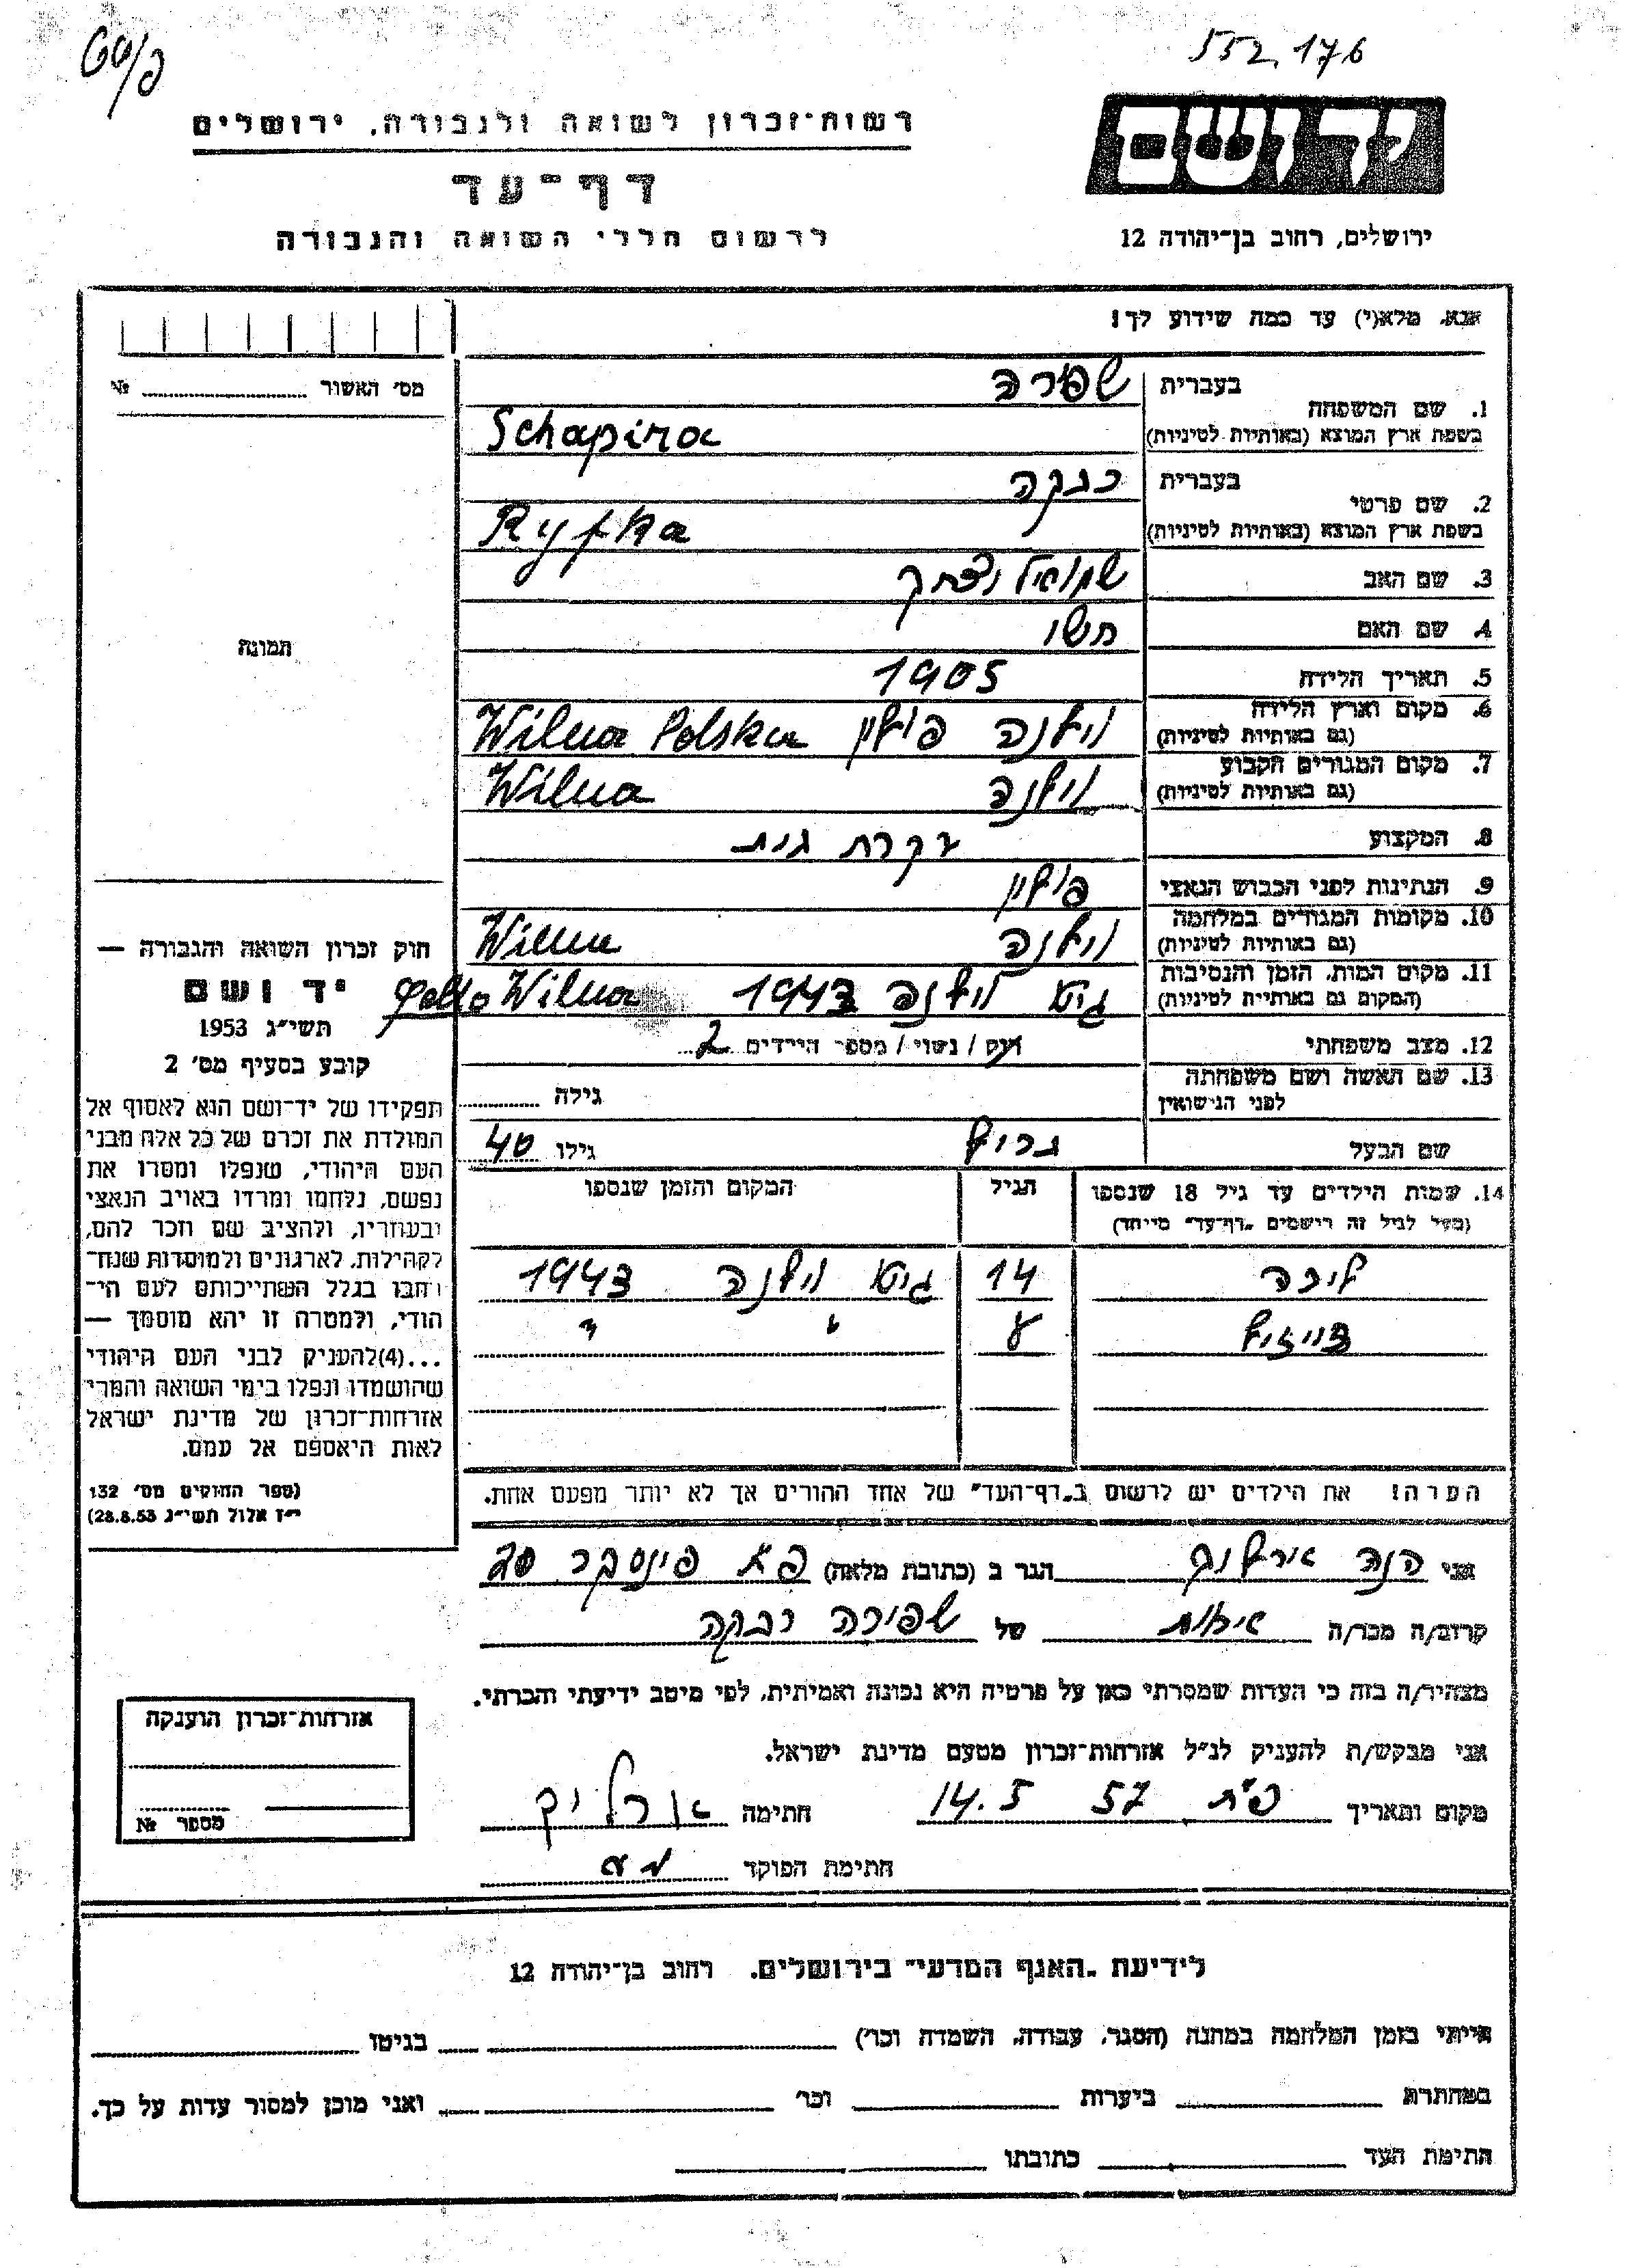 552,176
רשות־זכרון לשואה ולגבורה, ירושלים
דף־עד
לרשום חללי השואה והגבורה
יד ושם
ירושלים, רחוב בן־יהודה 12
אנא, מלא(י) עד כמה שידוע לך!
1. שם המשפחה
בעברית שפירה
בשפת ארץ המוצא (באותיות לטיניות) Schapira
2. שם פרטי
בעברית רבקה
בשפת ארץ המוצא (באותיות לטיניות) Ryfka
3. שם האב שמואל יצחק
4. שם האם
5. תאריך הלידה 1905
6. מקום וארץ הלידה
(גם באותיות לטיניות) וילנה פולין Wilna Polska
7. מקום המגורים הקבוע
(גם באותיות לטיניות) וילנה Wilna
8. המקצוע עקרת בית
9. הנתינות לפני הכבוש הנאצי פולין
10. מקומות המגורים במלחמה
(גם באותיות לטיניות) וילנה Wilna
11. מקום המות, הזמן והנסיבות
(המקום גם באותיות לטיניות) גיטו וילנה 1943 Wilna
12. מצב משפחתי רווק / נשוי / מספר הילדים 2
13. שם האשה ושם משפחתה
לפני הנישואין גילה
שם הבעל גילו 40
14. שמות הילדים עד גיל 18 שנספו
(מעל לגיל זה רושמים "דף־עד" מיוחד)
הגיל
המקום והזמן שנספו
14 גיטו וילנה 1943
8 " "
הערה! את הילדים יש לרשום ב"דף־העד" של אחד ההורים אך לא יותר מפעם אחת.
מס' האשור № 
תמונה
חוק זכרון השואה והגבורה —
יד ושם
תשי"ג 1953
קובע בסעיף מס' 2
תפקידו של יד־ושם הוא לאסוף אל
המולדת את זכרם של כל אלה מבני
העם היהודי, שנפלו ומסרו את
נפשם, נלחמו ומרדו באויב הנאצי
ובעוזריו, ולהציב שם וזכר להם,
לקהילות, לארגונים ולמוסדות שנח־
רבו בגלל השתייכותם לעם הי־
הודי, ולמטרה זו יהא מוסמך —
...(4) להעניק לבני העם היהודי
שהושמדו ונפלו בימי השואה והמרי
אזרחות־זכרון של מדינת ישראל
לאות היאספם אל עמם.
(ספר החוקים מס' 132
י"ז אלול תשי"ג 28.8.53)
אני חנה ארליך הגר ב (כתובת מלאה) פ"ת פינסקר 30
קרוב/ה מכר/ה אחות של שפירה רבקה
מצהיר/ה בזה כי העדות שמסרתי כאן על פרטיה היא נכונה ואמיתית, לפי מיטב ידיעתי והכרתי.
אני מבקש/ת להעניק לנ"ל אזרחות־זכרון מטעם מדינת ישראל.
מקום ותאריך פ"ת 14.5 57 חתימה ארליך
חתימת הפוקד
אזרחות־זכרון הוענקה
מספר №
לידיעת "האגף המדעי" בירושלים, רחוב בן־יהודה 12
הייתי בזמן המלחמה במחנה (הסגר, עבודה, השמדה וכו') בגיטו
במחתרת ביערות וכו' ואני מוכן למסור עדות על כך.
חתימת העד כתובתו